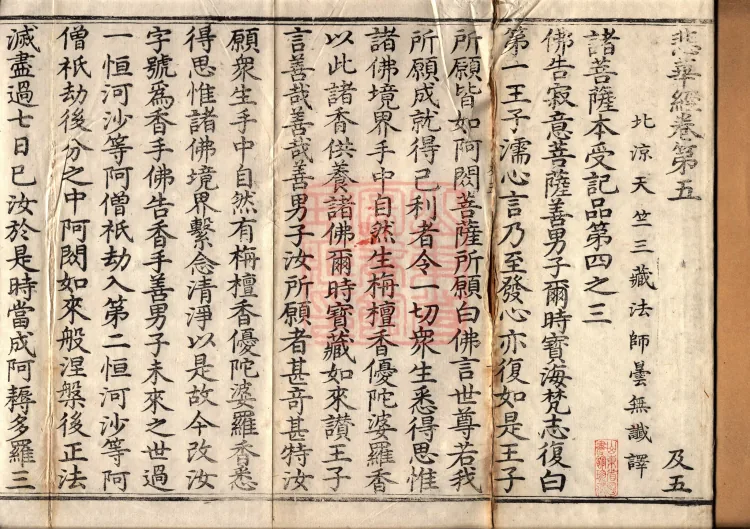 悲華經卷第五
北涼天竺三藏法師曇無讖譯
及五
諸菩薩本受記品第四之三
佛告寂意菩薩善男子爾時寶海梵志復白
第一王子濡心言乃至發心亦復如是王子
所願皆如阿閦菩薩所願白佛言世尊若我
所願成就得己利者令一切眾生悉得思惟
諸佛境界手中自然生栴檀香優陀婆羅香
以此諸香供養諸佛爾時寶藏如來讚王子
言善哉善哉善男子汝所願者甚奇甚特汝
願衆生手中自然有栴檀香優陀婆羅香悉
得思惟諸佛境界繫念清淨以是故今改汝
字號為香手佛告香手善男子未來之世過
一恒河沙等阿僧祇劫入第二恒河沙等阿
僧祇劫後分之中阿閦如來般涅槃後正法
滅盡過七日已汝於是時當成阿耨多羅三